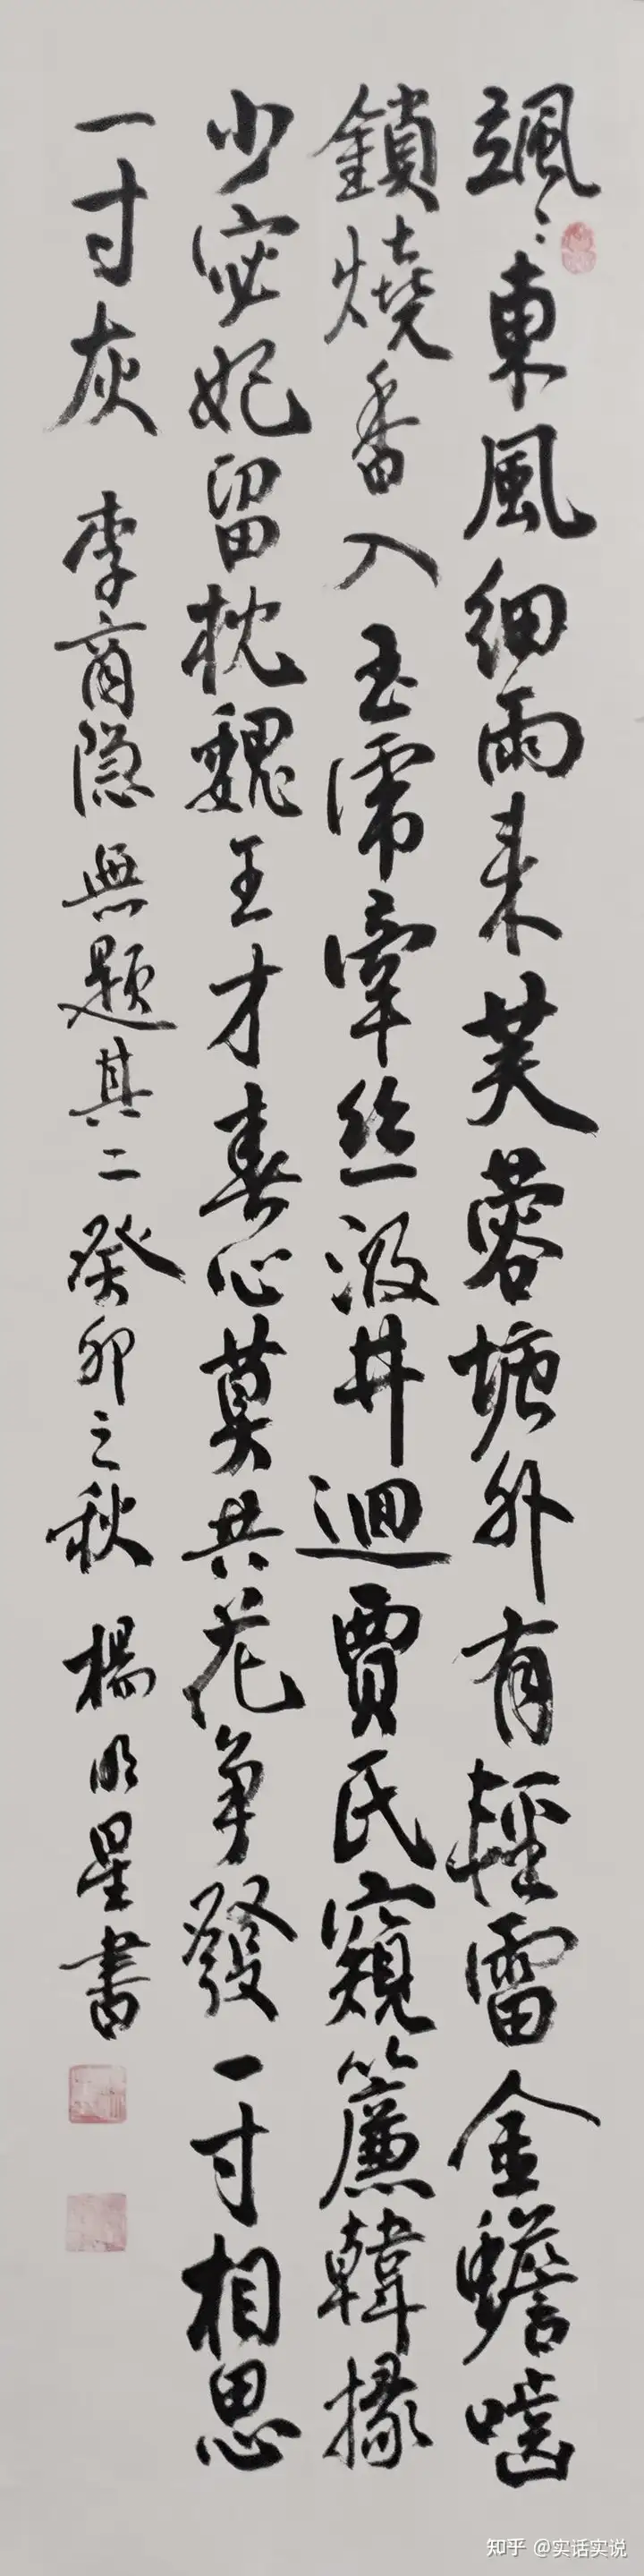 颯〻東風細雨来芙蓉塘外有輕雷金蟾嚙
鎖燒香入玉虎牽丝汲井迴賈氏窺簾韓掾
少宓妃留枕魏王才春心莫共花争發一寸相思
一寸灰 李商隐無题其二癸卯之秋 楊明星書
知乎 @实话实说